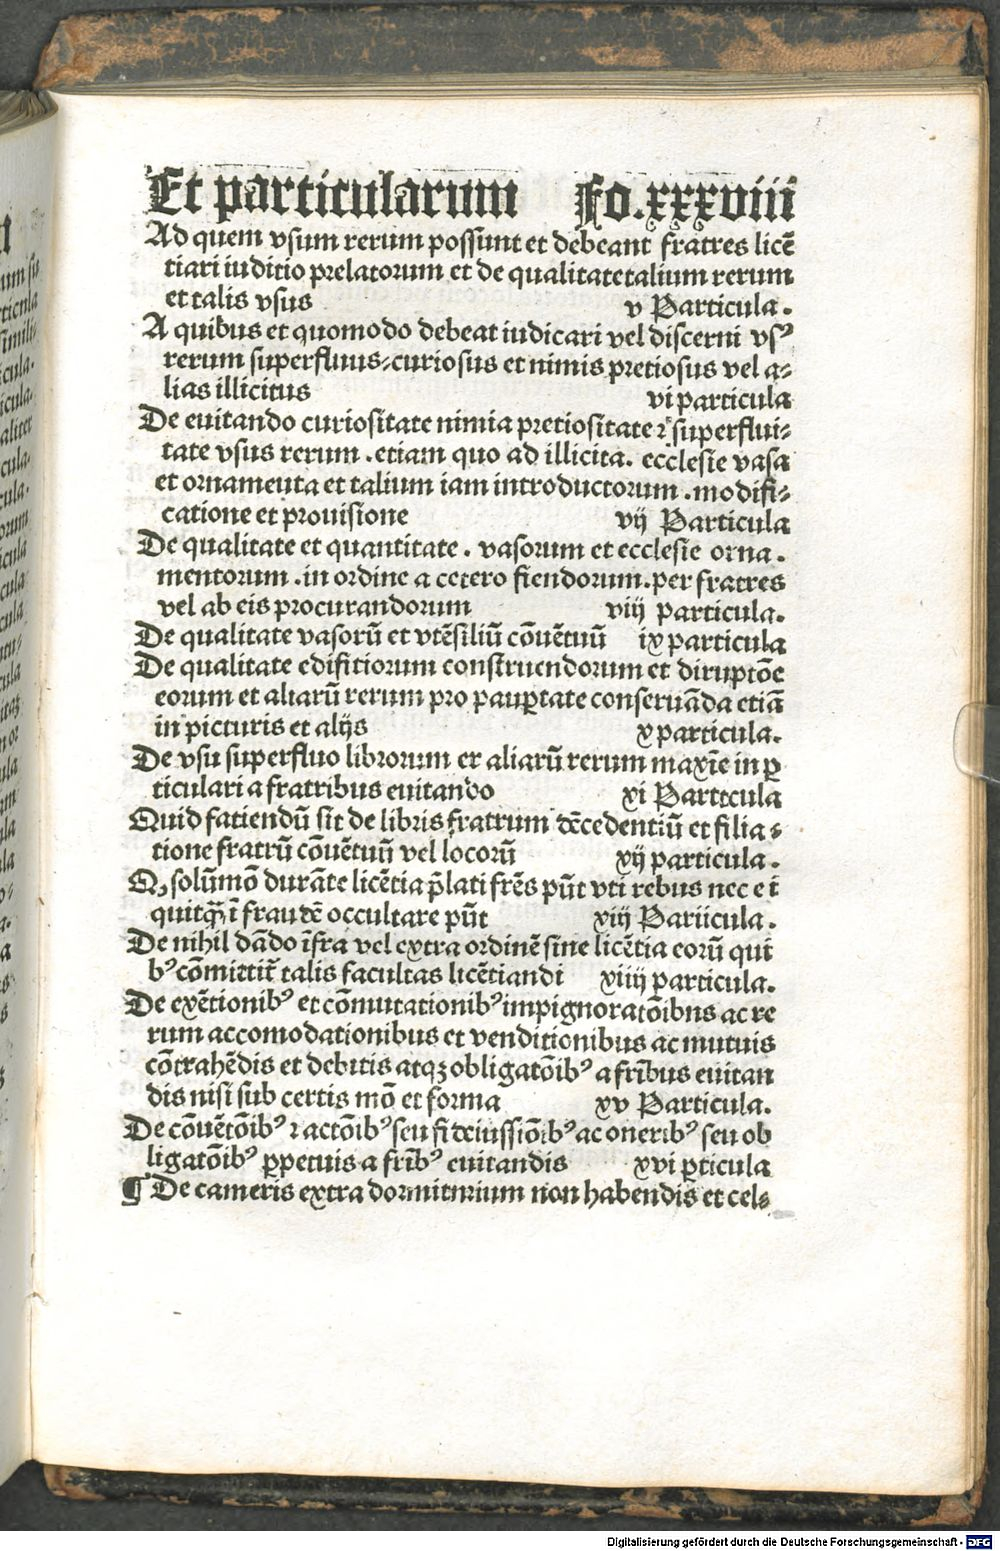 Et particularum Fo.xxxviii
Ad quem vsum rerum possunt et debeant fratres licẽ
tiari iuditio prelatorum et de qualitate talium rerum
et talis vsus v Particula.
A quibus et quomodo debeat iudicari vel discerni vsꝰ
rerum superfluus⸗curiosus et nimis pretiosus vel a⸗
lias illicitus vi particula
De euitando curiositate nimia pretiositate ⁊ superflui⸗
tate vsus rerum .etiam quo ad illicita. ecclesie vasa
et ornameuta et talium iam introductorum .modifi⸗
catione et prouisione vij Particula
De qualitate et quantitate . vasorum et ecclesie orna .
mentorum .in ordine a cetero fiendorum.per fratres
vel ab eis procurandorum viij particula.
De qualitate vasorũ et vtẽsiliũ cõuẽtuũ ix particula
De qualitate edifitiorum construendorum et diruptõe
eorum et aliarũ rerum pro pauꝑtate conseruãda etiã
in picturis et alijs x particula.
De vsu superfluo librorum er aliarũ rerum maxĩe in ꝑ
ticulari a fratribus euitando xi Partecula
Quid fatiendũ sit de libris fratrum dẽcedentiũ et filia⸗
tione fratrũ cõuẽtuũ vel locorũ xij particula .
Qꝫ solũmõ durãte licẽtia p̃lati frẽs pñt vti rebus nec e ĩ
quitꝙ̃ ĩ fraudẽ occultare pñt xiij Pariicula .
De nihil dãdo ĩfra vel extra ordinẽ sine licẽtia eorũ qui
bꝰ cõmittit̃ talis facultas licẽtiandi xiiij particula.
De exẽtionibꝰ et cõmutationibꝰ impignoratõibns ac re
rum accomodationibus et venditionibus ac mutuis
cõtrahẽdis et debitis atqꝫ obligatõibꝰ a frĩbus euitan
dis nisi sub certis mõ et forma xv Particula.
De cõuẽtõibꝰ ⁊ actõibꝰ seu fideiussiõibꝰ ac oneribꝰ seu ob
ligatõibꝰ ꝑpetuis a frĩbꝰ euitandis xvi ꝑticula
¶ De cameris extra dormitorium non habendis et cel⸗
Digitalisierung gefördert durch die Deutsche Forschungsgemeinschaft - DFG